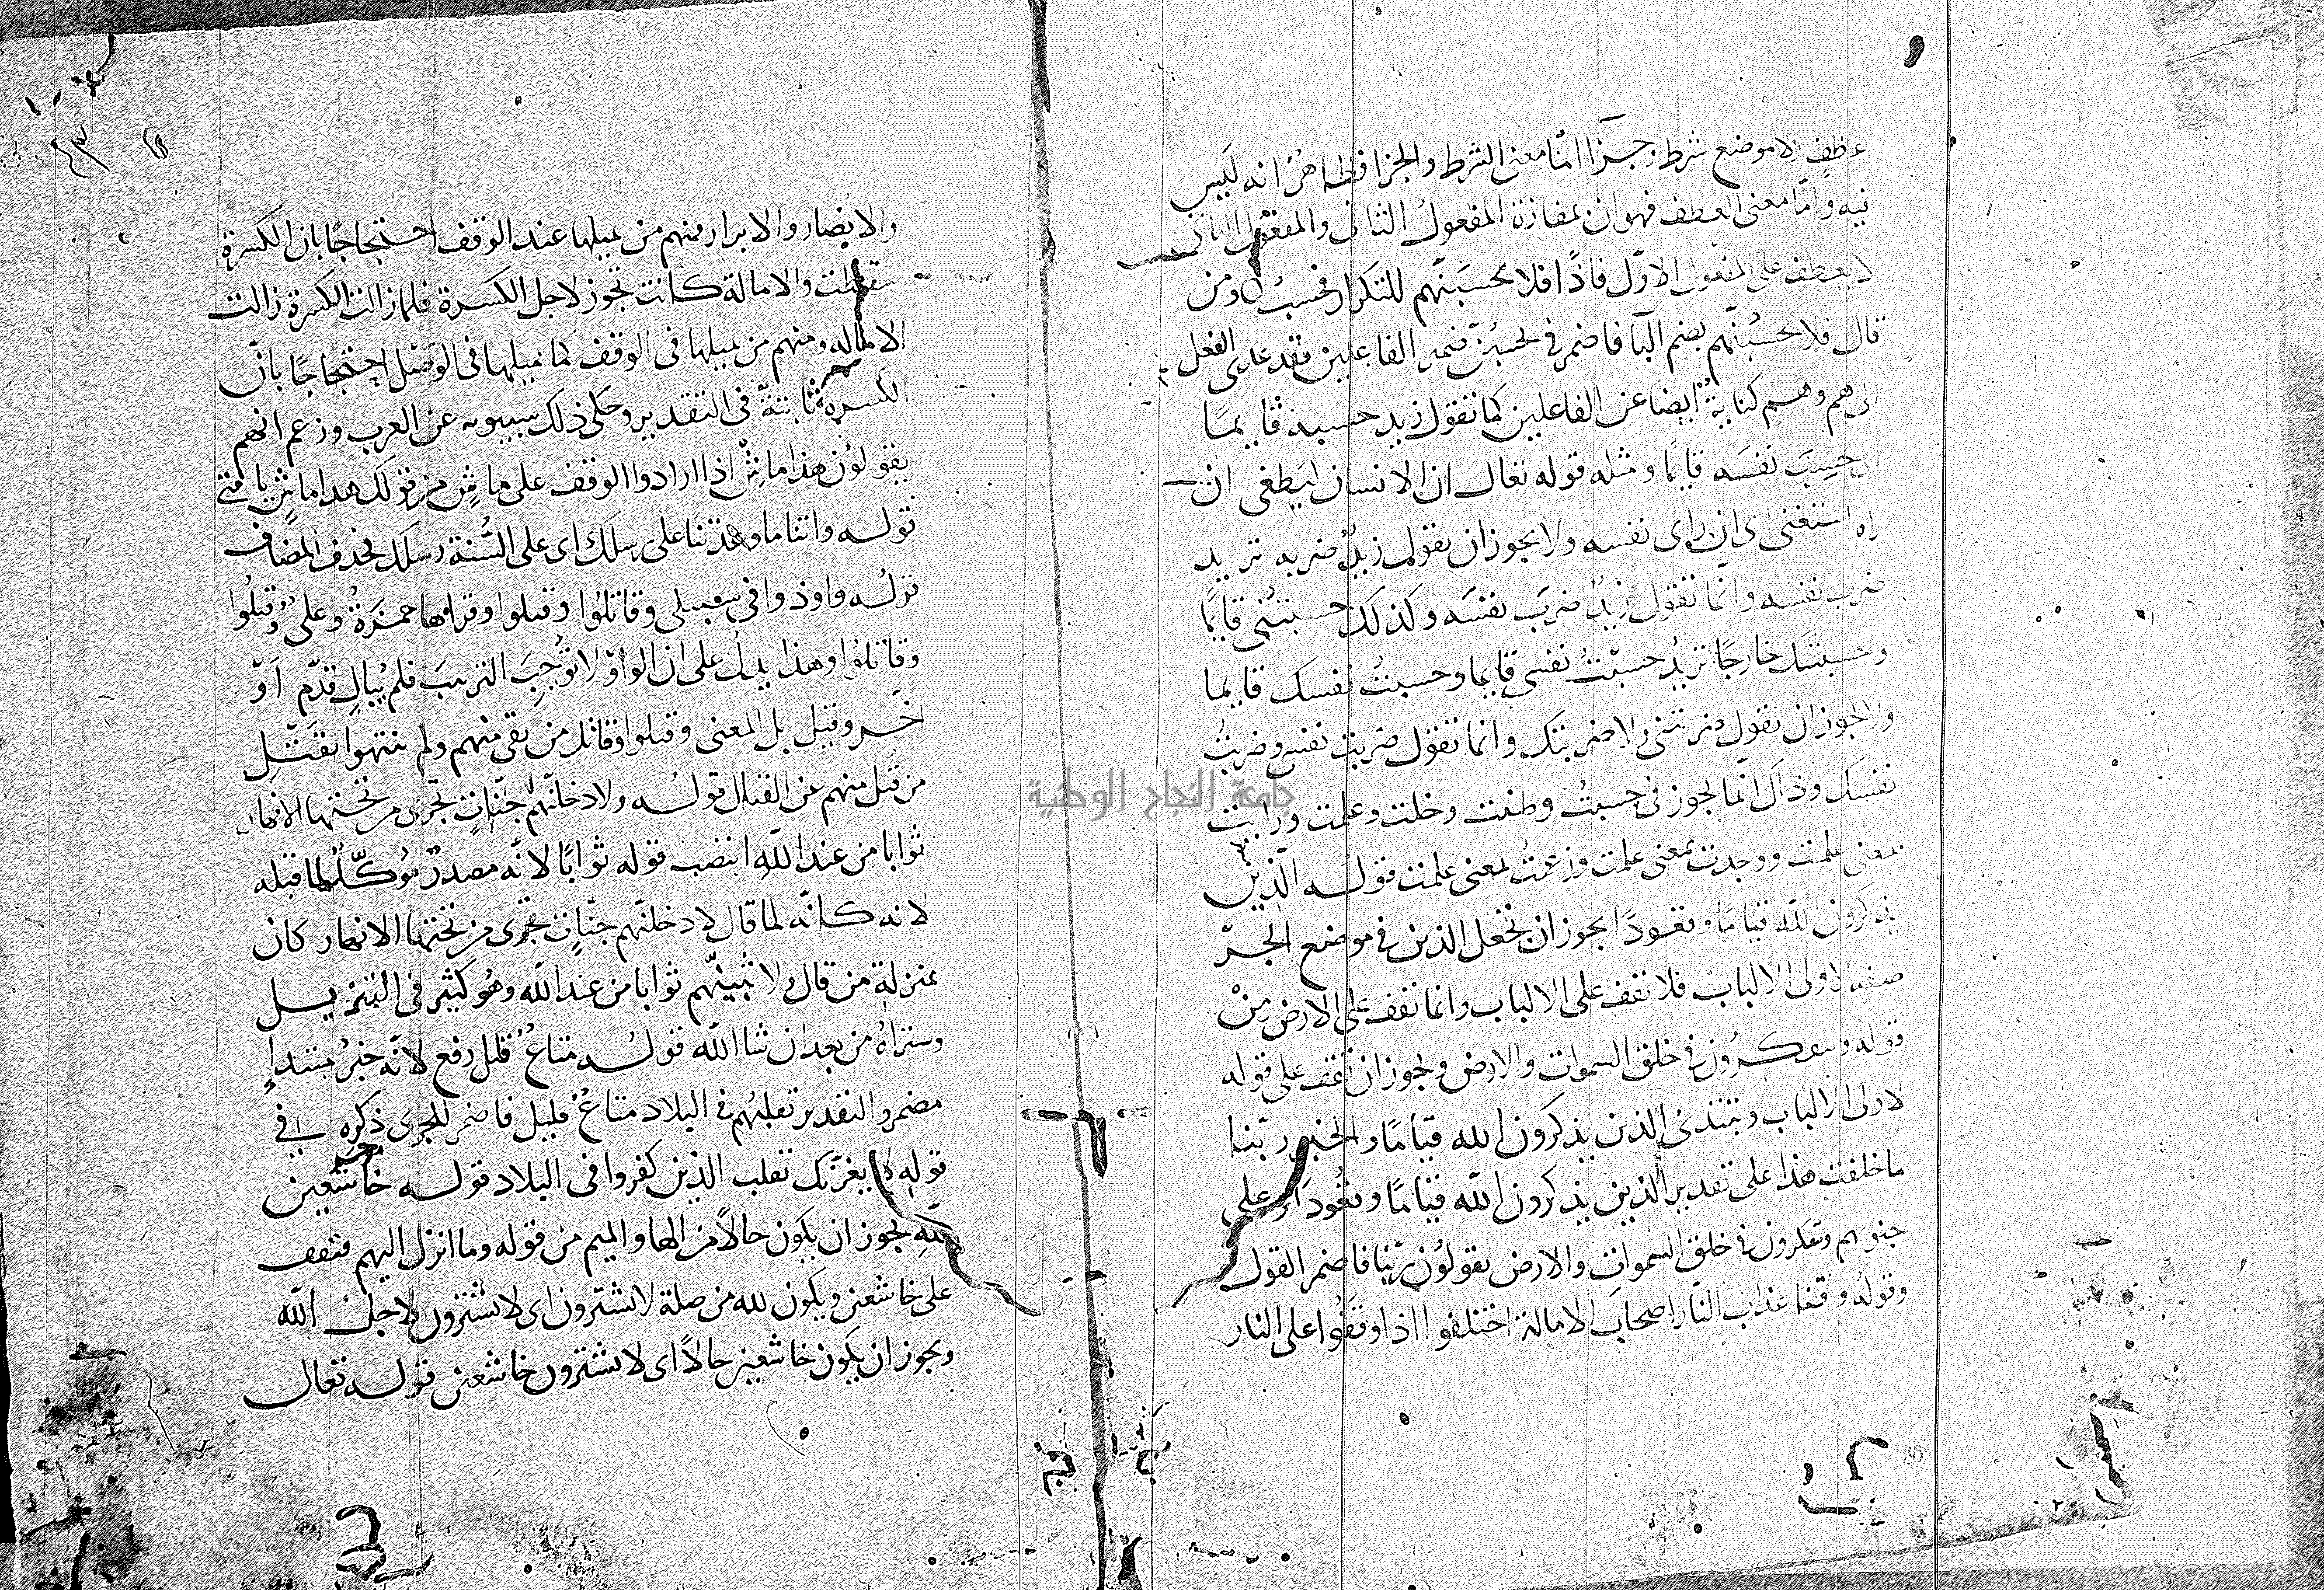 عطف ولا موضع شرط وجزآ امّا معنى الشرط والجزا فظاهرٌ انه ليس
فيه وامّا معنى العطف فهو ان بمفازة المفعول الثانى والمفعول الثانى
لا يعطف على المفعول الاوّل فاذًا فلا تحسبَنّهم للتكرار فحسبُ ومن
قال فلا يحسبُنّهم بضم البآ فاضمر فى يحسبُنّ ضمير الفاعلين فقد عدى الفعل
الى هم وهم كنايةٌ ايضا عن الفاعلين كما تقول زيد حسبه قايمًا
اى حسِبَ نفسَه قايمًا ومثله قوله تعالى ان الانسان ليَطغى ان
راه استغنى اى ان راى نفسه ولا يجوز ان تقول زيدٌ ضربه تريد
ضرب نفسَه وانّما تقول زيدٌ ضربَ نفسَه وكذلك حسبتُنى قايمًا
وحسبتَك خارجًا تريد حسبْتُ نفسى قايما وحسبتَ نفسك قايما
ولا يجوز ان تقول ضربتنى ولا ضربتك وانما تقول ضربت نفسى وضربتَ
نفسك وذاك انّما يجوز فى حسبتُ وظننت وخلت وعلمت ورايت
بمعنى علمت ووجدت بمعنى علمت وزعمتُ بمعنى علمت قوله الّذين
يذكرون الله قيامًا وقعودًا يجوز ان تجعل الذين فى موضع الجرّ
صفة لاولى الالباب فلا تقف على الالباب وانما تقف على الارض مِنْ
قوله ويتفكرون فى خلق السموات والارض ويجوز ان تقف على قوله
لاولى الالباب وتبتدئ الذين يذكرون الله قيامًا والخبر ربّنا
ما خلقت هذا على تقدير الذين يذكرون الله قيامًا وقعُودًا وعلى
جنوبهم ويتفكرون فى خلق السموات والارض يقولُون ربّنا فاضمر القول
وقوله وقنا عذاب النّار اصحاب الامالة اختلفوا اذا وقفُوا على النار
والانصار والابرار فمنهم من يميلها عند الوقف احتجاجًا بان الكسرة
سقطت والامالة كانت تجوز لاجل الكسرة فلما زالت الكسرة زالت
الامالة ومنهم من يميلها فى الوقف كما يميلها فى الوصْل احتجاجًا بانّ
الكسرة ثابتةٌ فى التقدير وحكى ذلك سيبويه عن العرب وزعم انهم
يقولوُن هذا ماشْ اذا ارادوا الوقف على ماشٍ من قولك هذا ماشٍ يا فتى
قوله واتنا ما وعدتنا على رسلك اى على السُّنة رسلك فحذف المضاف
قوله واوذوا فى سبيلى وقاتلُوا وقتلوا وقراها حمزةُ وعلىٌّ وقُتِلُوا
وقاتلُوا وهذا يدلّ على ان الواوَ لا تُوجِبَ الترتيبَ فلم يُبالِ قدّم اَوْ
اخّر وقيل بل المعنى وقتلوا وقاتل من بقى منهم ولم ينتهوا بقَتْلِ
من قُتل منهم عن القتال قوله ولادخلنّهم جنّاتٍ تجرى من تحتها الانهار
ثوابا من عند الله انتصب قوله ثوابًا لانّه مصدرٌ مُوكِّدٌ لما قبله
لانه كانّه لما قال لادخلنّهم جنّاتٍ تجرى من تحتها الانهار كان
بمنزلة من قال ولاثيبنّهم ثوابا من عند الله وهُو كثير فى التنزيل
وستراهُ من بعد ان شا الله قوله متاعٌ قليل رفع لانّه خبرُ مبتداٍ
مضمر والتقدير تقلبُهم فى البلاد متاعٌ قليل فاضمر لجرى ذكره فى
قوله لا يغرّنك تقلب الذين كفروا فى البلاد قوله خاشعين
للّهِ يجوز ان يكون حالاً من الها والميم من قوله وما انزل اليهم فتقف
على خاشعين ويكون لله من صلة لا يشترون اى لا يشترون لاجل الله
ويجوز ان يكون خاشعين حالاً اى لا يشترون خاشعين قوله تعالى
جامعة النجاح الوطنية